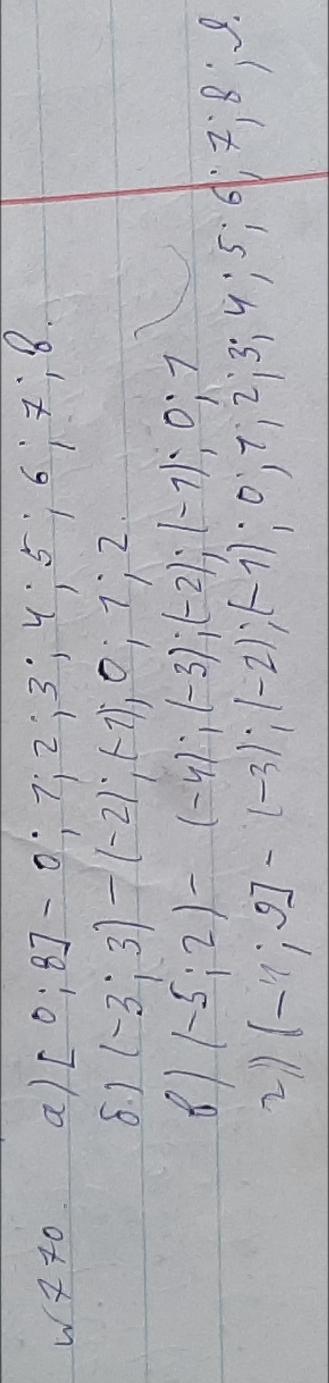 № 770. а) [0; 8] – 0; 1; 2; 3; 4; 5; 6; 7; 8.
б) (-3; 3) – (-2); (-1); 0; 1; 2.
в) (-5; 2) – (-4); (-3); (-2); (-1); 0; 1
г) (-4; 9] – (-3); (-2); (-1); 0; 1; 2; 3; 4; 5; 6; 7; 8; 9.